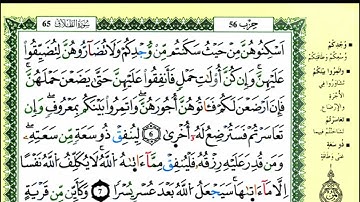 حزب 56
سورة الطلاق 65
أَسْكِنُوهُنَّ مِنْ حَيْثُ سَكَنتُم مِّن وُجْدِكُمْ وَلَا تُضَآرُّوهُنَّ لِتُضَيِّقُوا۟
عَلَيْهِنَّ وَإِن كُنَّ أُو۟لَـٰتِ حَمْلٍ فَأَنفِقُوا۟ عَلَيْهِنَّ حَتَّىٰ يَضَعْنَ حَمْلَهُنَّ
فَإِنْ أَرْضَعْنَ لَكُمْ فَـَٔاتُوهُنَّ أُجُورَهُنَّ وَأْتَمِرُوا۟ بَيْنَكُم بِمَعْرُوفٍ وَإِن
تَعَاسَرْتُمْ فَسَتُرْضِعُ لَهُۥٓ أُخْرَىٰ ٦ لِيُنفِقْ ذُو سَعَةٍ مِّن سَعَتِهِۦ
وَمَن قُدِرَ عَلَيْهِ رِزْقُهُۥ فَلْيُنفِقْ مِمَّآ ءَاتَىٰهُ ٱللَّهُ لَا يُكَلِّفُ ٱللَّهُ نَفْسًا
إِلَّا مَآ ءَاتَىٰهَا سَيَجْعَلُ ٱللَّهُ بَعْدَ عُسْرٍ يُسْرًا ٧ وَكَأَيِّن مِّن قَرْيَةٍ
وُجْدِكُمْ
وُسْعِكُمْ وطاقتِكُمْ
وأْتَمِرُوا بَيْنَكُمْ
تَعَاسَرْتُمْ
ذُو سَعَةٍ
غِنًى وطَاقَةٍ